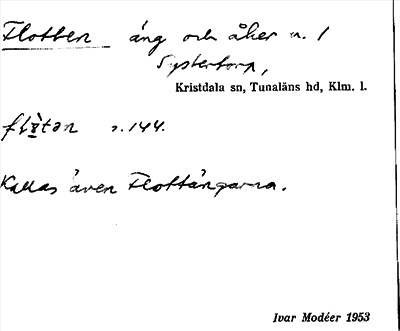 Flotten äng och åker n. 1
Systertorp,
Kristdala sn, Tunaläns hd, Klm. l.
s. 144.
Kallas även Flottängarna.
Ivar Modéer 1953